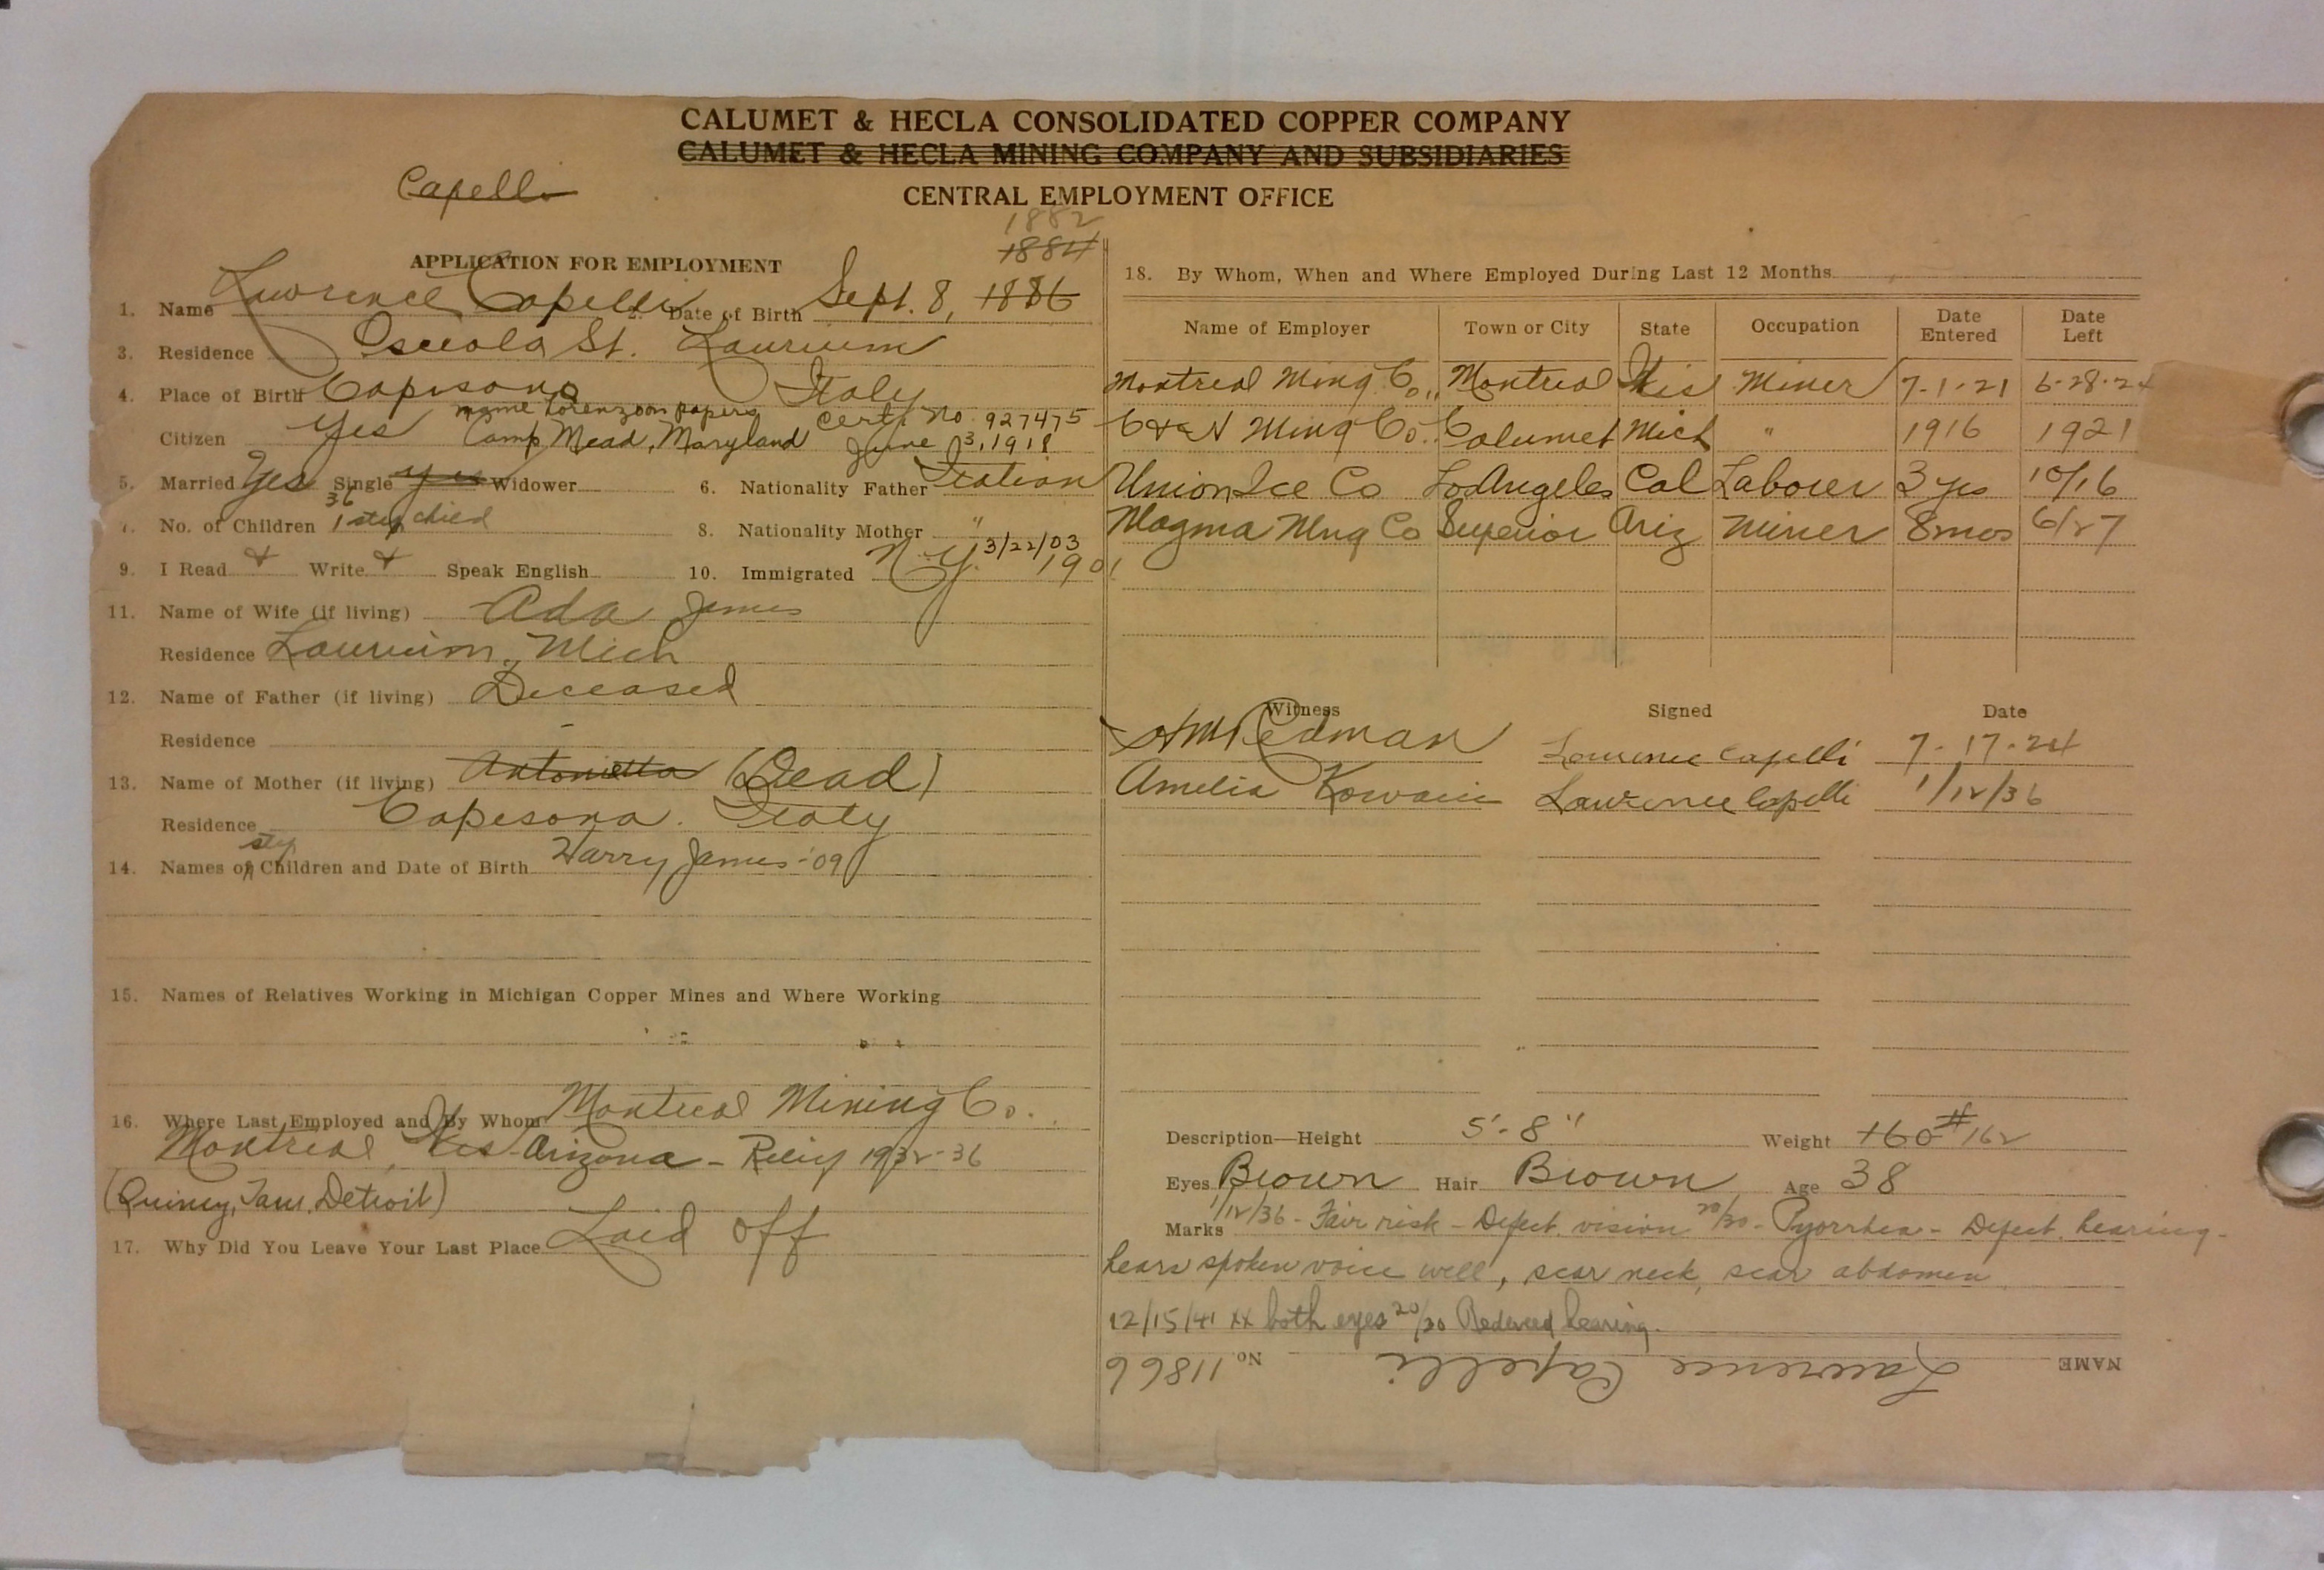 CALUMET & HECLA CONSOLIDATED COPPER COMPANY
CALUMET & HECLA MINING COMPANY AND SUBSIDIARIES
Capelli
CENTRAL EMPLOYMENT OFFICE
1882
1884
APPLICATION FOR EMPLOYMENT
1. Name Lawrence Capelli 2. Date of Birth Sept. 8, 1886
3. Residence Osceola St. Laurium
4. Place of Birth Capisono Italy
name Lorenzo on papers Certf. No. 927475
Citizen Yes Camp Mead, Maryland June 3, 1918
5. Married Yes Single yes Widower 6. Nationality Father Italian
36
7. No. of Children 1 step child 8. Nationality Mother "
3/22/03
9. I Read + Write + Speak English 10. Immigrated N.Y. 1901
11. Name of Wife (if living) Ada James
Residence Laurium, Mich
12. Name of Father (if living) Deceased
Residence -
13. Name of Mother (if living) Antonietta (Dead)
Residence Capesona. Italy
step
14. Names of Children and Date of Birth Harry James - '09
15. Names of Relatives Working in Michigan Copper Mines and Where Working
16. Where Last Employed and By Whom Montreal Mining Co.
Montreal, Wis - Arizona - Relief 1932-36
(Quincy, Tam. Detroit)
17. Why Did You Leave Your Last Place Laid off
18. By Whom, When and Where Employed During Last 12 Months
Name of Employer Town or City State Occupation Date Entered Date Left
Montreal Ming. Co., Montreal Wis Miner 7-1-21 6-28-24
C & H Ming Co. Calumet Mich " 1916 1921
Union Ice Co Los Angeles Cal Laborer 3 yrs 10/16
Magma Mng Co Superior Ariz Miner 8 mos 6/27
Witness Signed Date
Redman Lawrence Capelli 7-17-24
Amelia Lawrence Capelli 1/12/36
Description—Height 5'-8" Weight 160# 162
Eyes Brown Hair Brown Age 38
Marks 1/12/36 - Fair risk - Defect. vision 20/30 - Pyorrhea - Defect. hearing -
hears spoken voice well, scar neck, scar abdomen
12/15/41 xx both eyes 20/30 Reduced hearing.
NAME Lawrence Capelli No. 11866